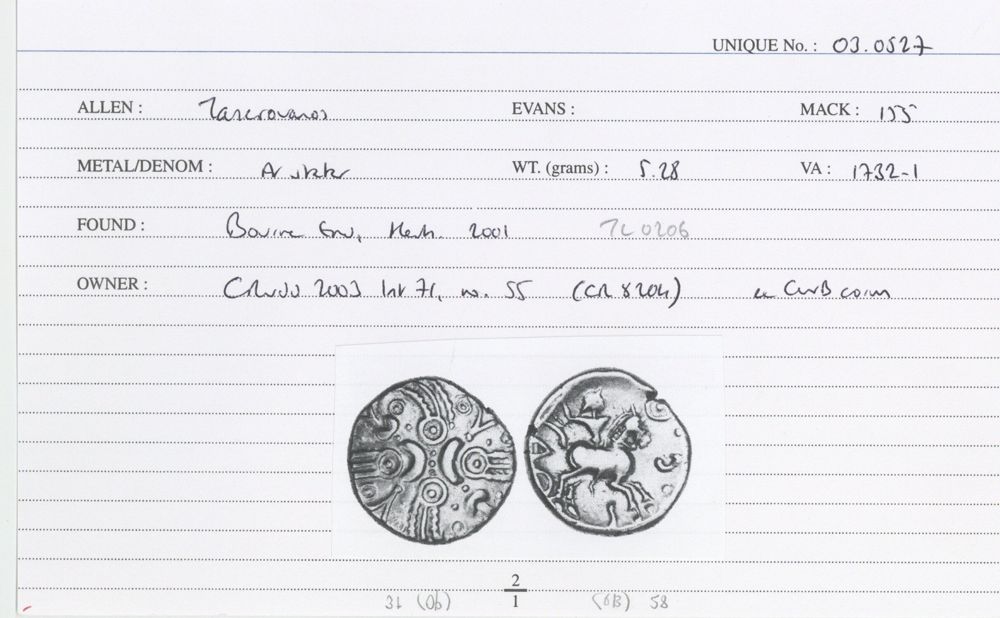 UNIQUE No. : 03.0527
ALLEN : Tasciovanos EVANS : MACK : 155
METAL/DENOM : AV stater WT. (grams) : 5.28 VA : 1732-1
FOUND : Bourne End, Herts. 2001 TL 0206
OWNER : CR 2003 list 71, no. 55 (CR 8204) ex CNB coins
2
1
31 (Ob) (6B) 58